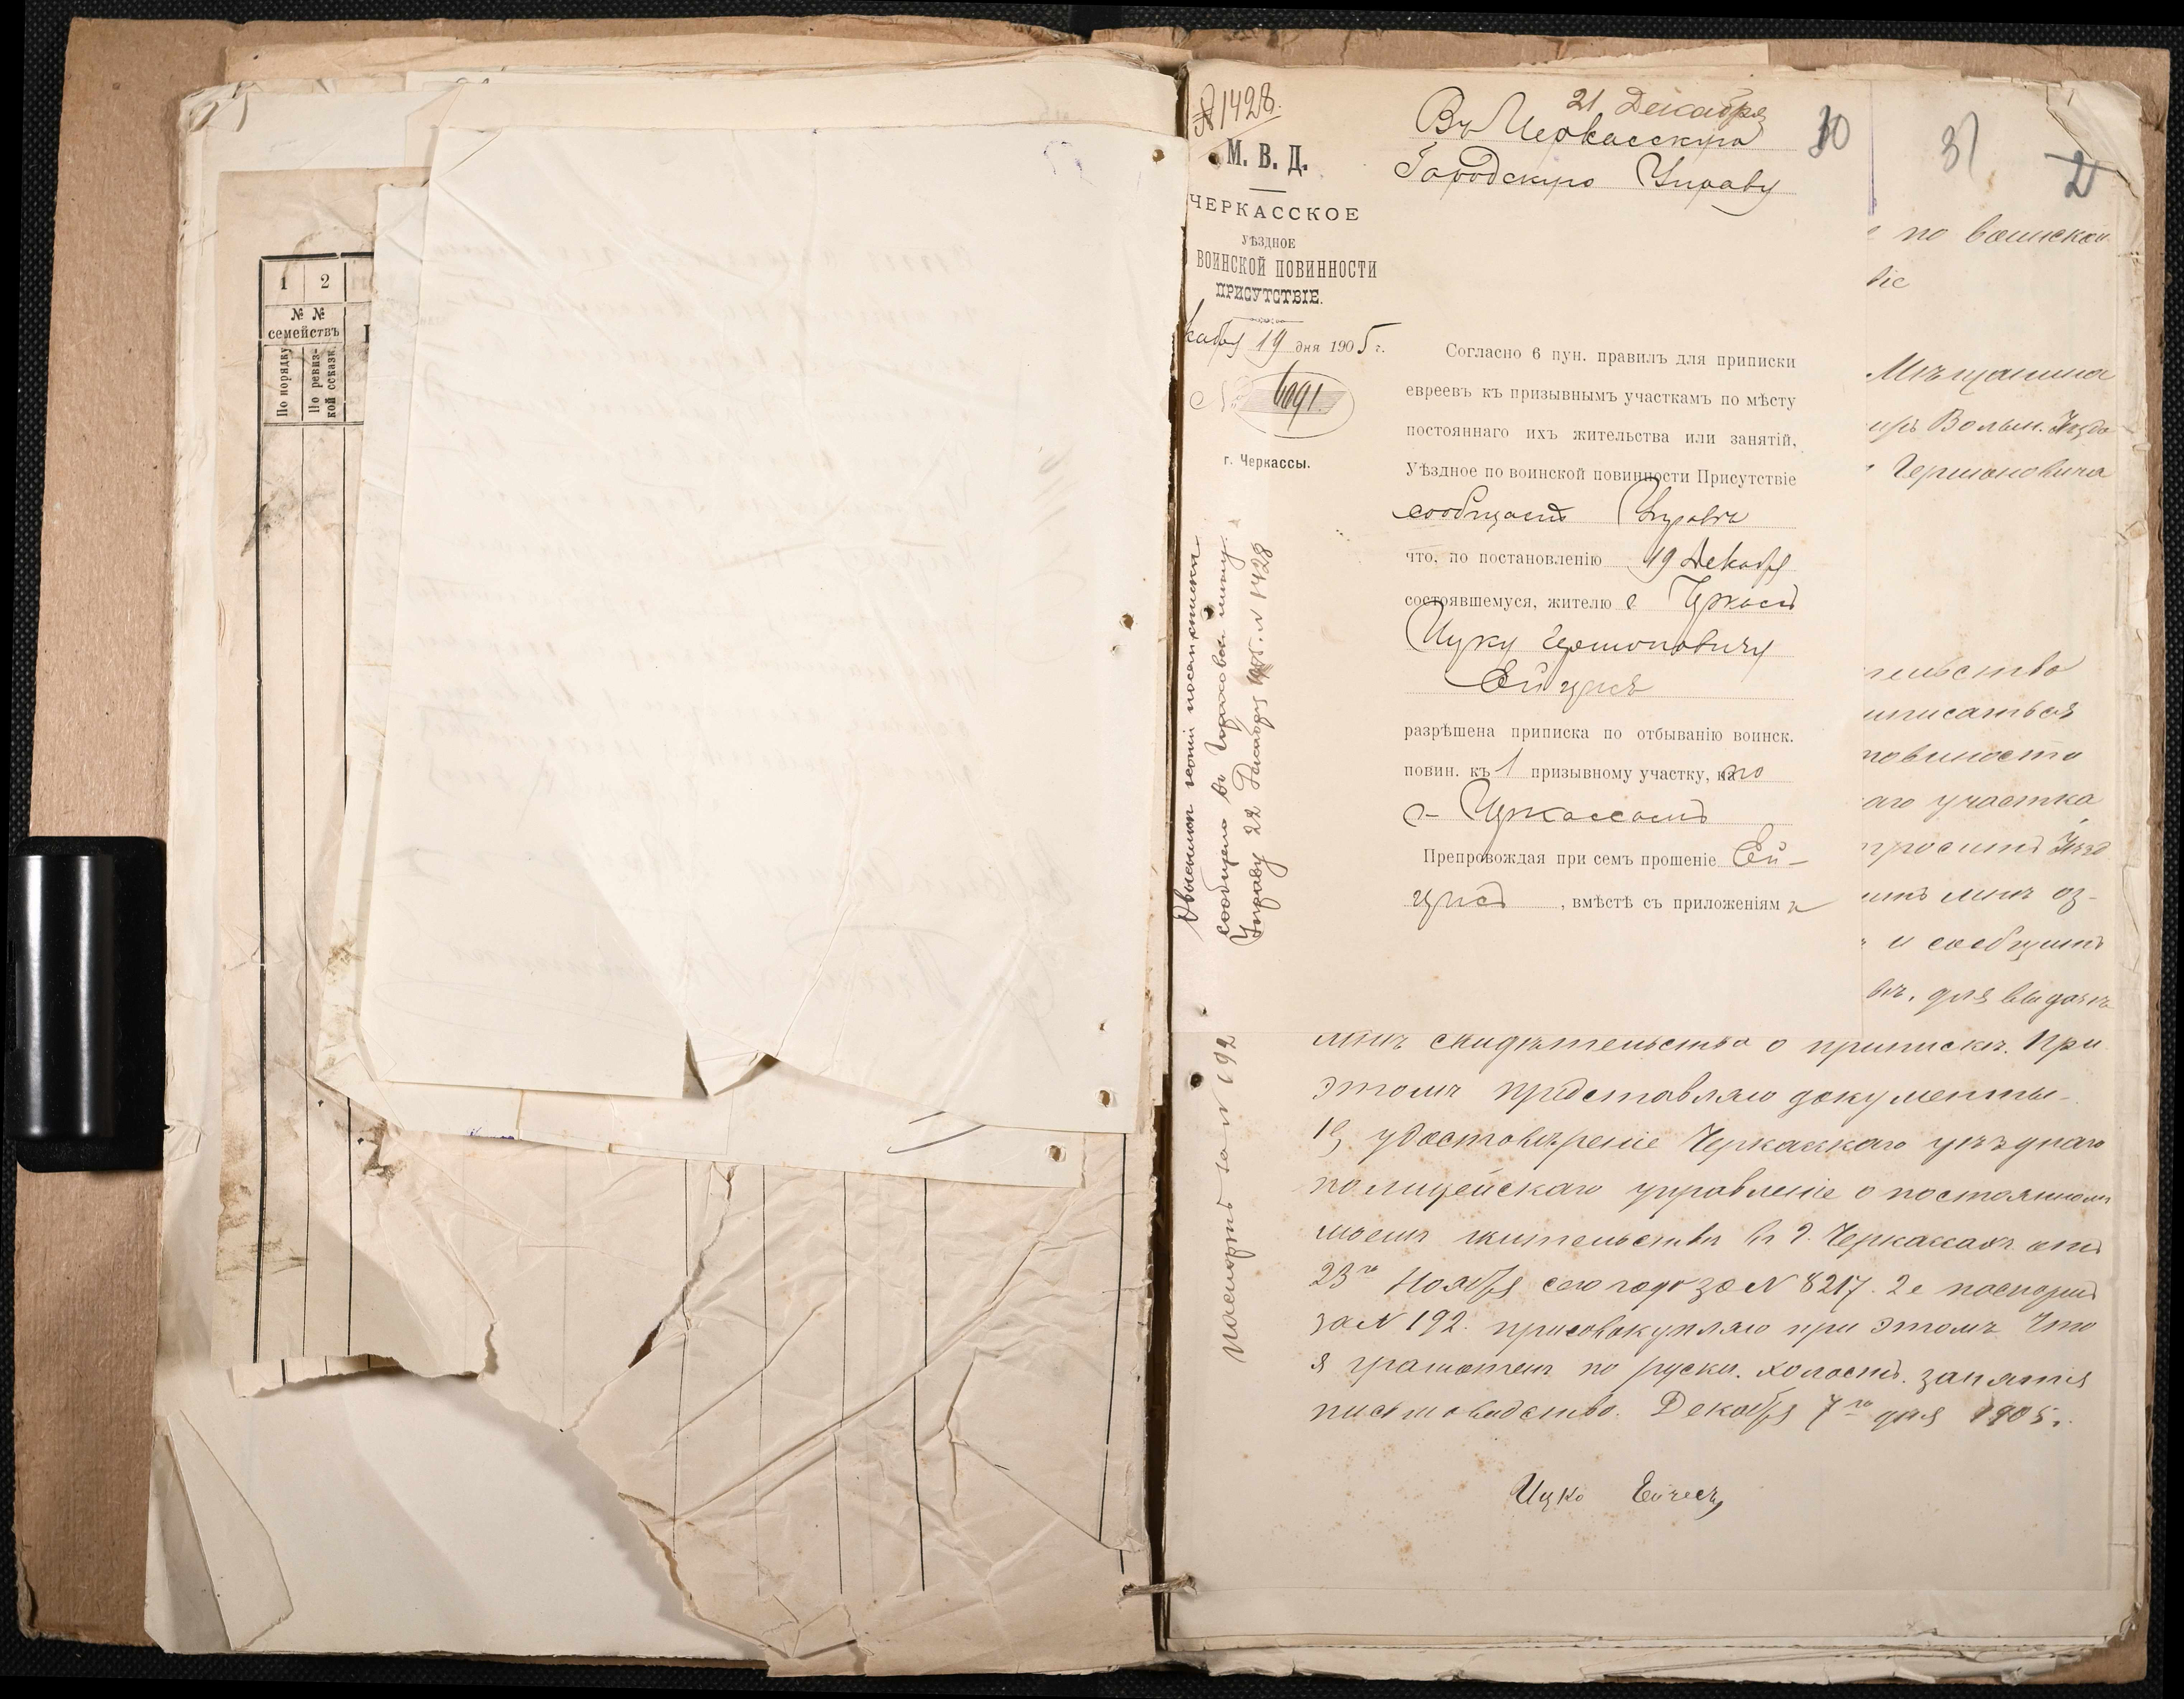 1 2
№ №
семействъ
По порядку
По ревиз-
кой ссказк.
№ 1428.
М. В. Д.
ЧЕРКАССКОЕ
УѢЗДНОЕ
ВОИНСКОЙ ПОВИННОСТИ
ПРИСУТСТВІЕ.
кабря 19 дня 1905 г.
№ 6091.
г. Черкассы.
21 Декабря
Въ Черкасскую
Городскую Управу
30
31
2
Согласно 6 пун. правилъ для приписки
евреевъ къ призывнымъ участкамъ по мѣсту
постояннаго ихъ жительства или занятій,
Уѣздное по воинской повинности Присутствіе
сообщаетъ Управѣ
что, по постановленію 19 Декабря
состоявшемуся, жителю г. Черкассъ
Ицку Гершоновичу
Ейчисъ
разрѣшена приписка по отбыванію воинск.
повин. къ 1 призывному участку, по
г. Черкассамъ
Препровождая при семъ прошеніе Ей-
чисъ, вмѣстѣ съ приложеніям
сообщено въ Городскую
Управу 22 Декабря 1905. N 1428
паспортъ за N 192
по воинской
віе
Мѣщанина
Волын. Уѣзда
Гершоновича
тельство
приписаться
повиности
аго участка
просить Уѣзд
мнѣ оз-
и сообщить
вѣ, для выдачѣ
мнѣ свидѣтельства о припискѣ. При
этомъ представляю документы.
1е удостовѣреніе Черкаскаго уѣзднаго
полицейскаго управленіе о постоянномъ
моемъ жительствѣ въ г. Черкассахъ отъ
23го Ноября сего года за N 8217. 2е паспортъ
за N 192. присовокупляю при этомъ что
я грамотенъ по руски. холостъ. занятія
писмоводство. Декабря 7го дня 1905.
Ицко Ейчесъ